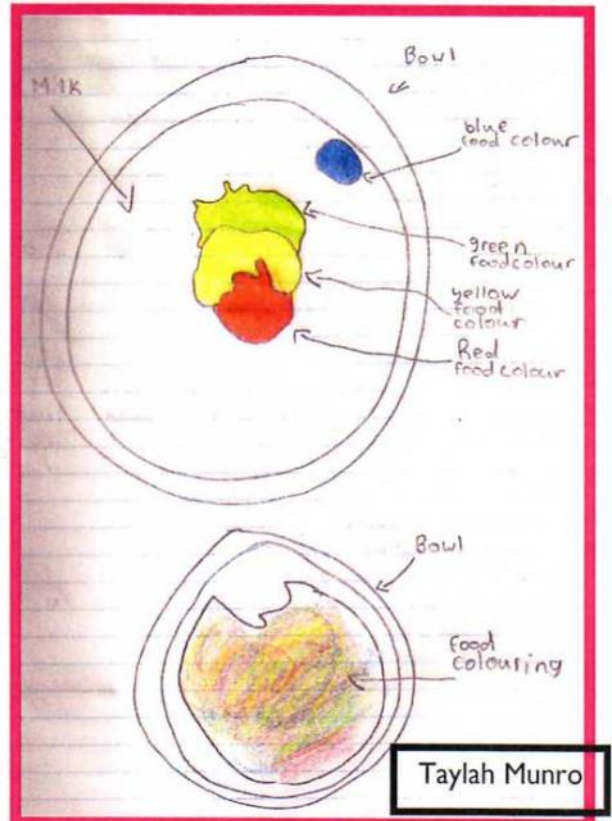 Bowl
Milk
blue
food colour
green
foodcolour
yellow
food
colour
Red
food colour
Bowl
food
colouring
Taylah Munro